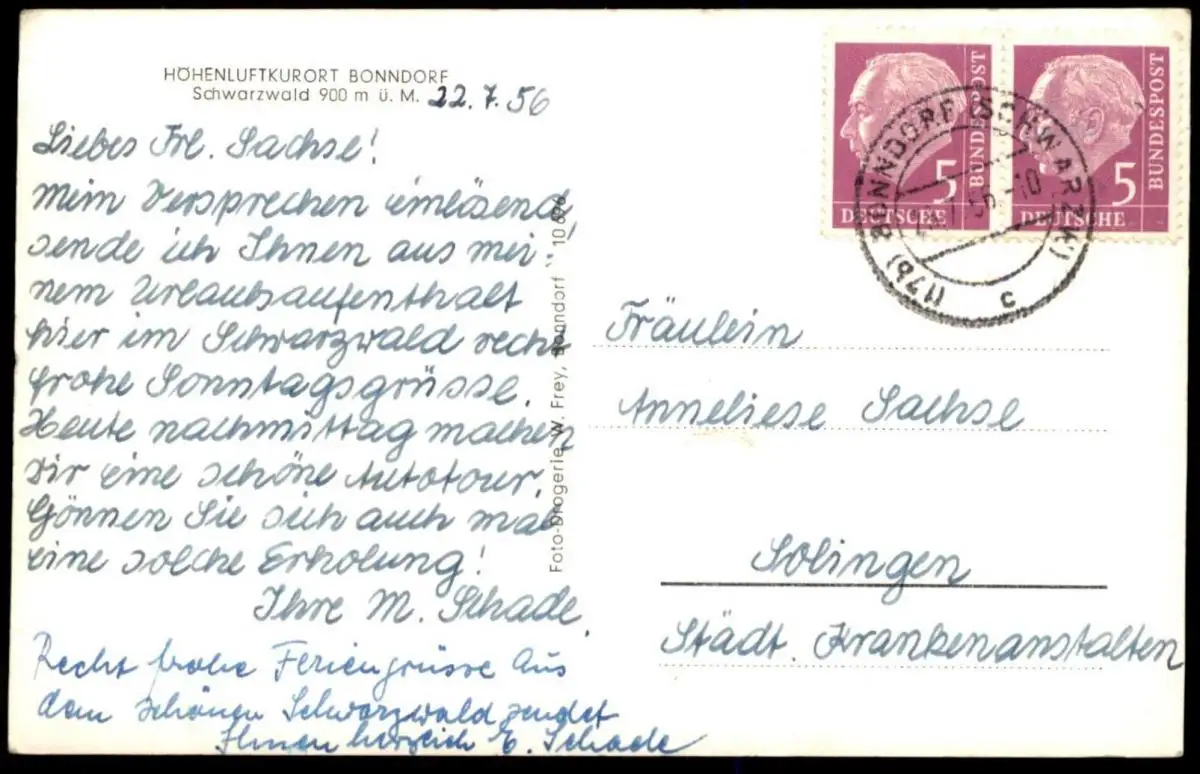 HÖHENLUFTKURORT BONNDORF
Schwarzwald 900 m ü. M. 22.7.56
Liebes Frl. Sachse!
Mein Versprechen einlösend,
sende ich Ihnen aus mei-
nem Urlaubsaufenthalt
hier im Schwarzwald recht
frohe Sonntagsgrüsse.
Heute nachmittag machen
wir eine schöne Autotour.
Gönnen Sie sich auch mal
eine solche Erholung!
Ihre M. Schade.
Recht frohe Feriengrüsse aus
dem schönen Schwarzwald sendet
Ihnen herzlich E. Schade
Foto-Drogerie W. Frey, Bonndorf 10696
5
DEUTSCHE
BUNDESPOST
5
DEUTSCHE
BUNDESPOST
(17b) BONNDORF (SCHWARZW)
56-10
c
Fräulein
Anneliese Sachse
Solingen
Städt. Krankenanstalten